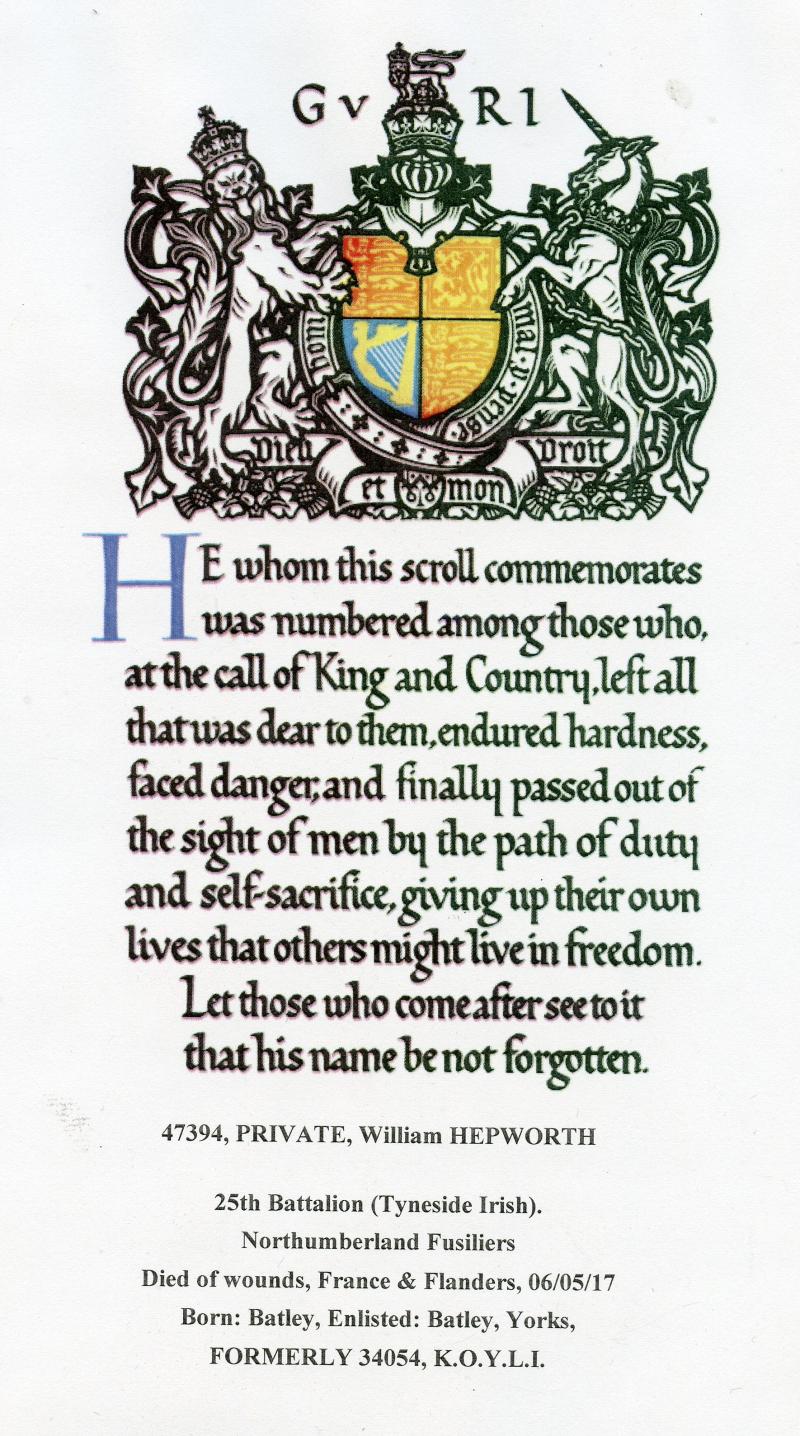 G V R I
hom
ma·y·pense
Dieu
Droit
et mon
HE whom this scroll commemorates
was numbered among those who,
at the call of King and Country, left all
that was dear to them, endured hardness,
faced danger, and finally passed out of
the sight of men by the path of duty
and self-sacrifice, giving up their own
lives that others might live in freedom.
Let those who come after see to it
that his name be not forgotten.
47394, PRIVATE, William HEPWORTH
25th Battalion (Tyneside Irish).
Northumberland Fusiliers
Died of wounds, France & Flanders, 06/05/17
Born: Batley, Enlisted: Batley, Yorks,
FORMERLY 34054, K.O.Y.L.I.